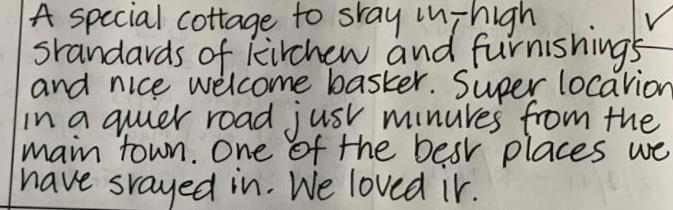 A special cottage to stay in - high
standards of kitchen and furnishings
and nice welcome basket. Super location
in a quiet road just minutes from the
main town. One of the best places we
have stayed in. We loved it.